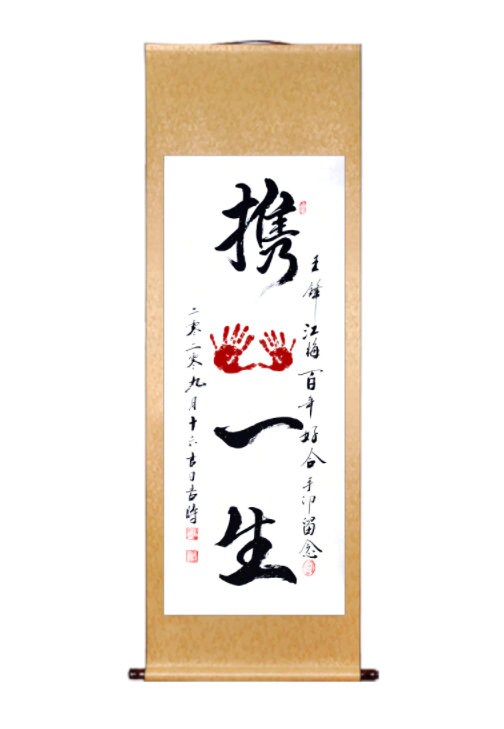 携一生
王锋江梅百年好合手印留念
二零二零九月十六吉日吉時